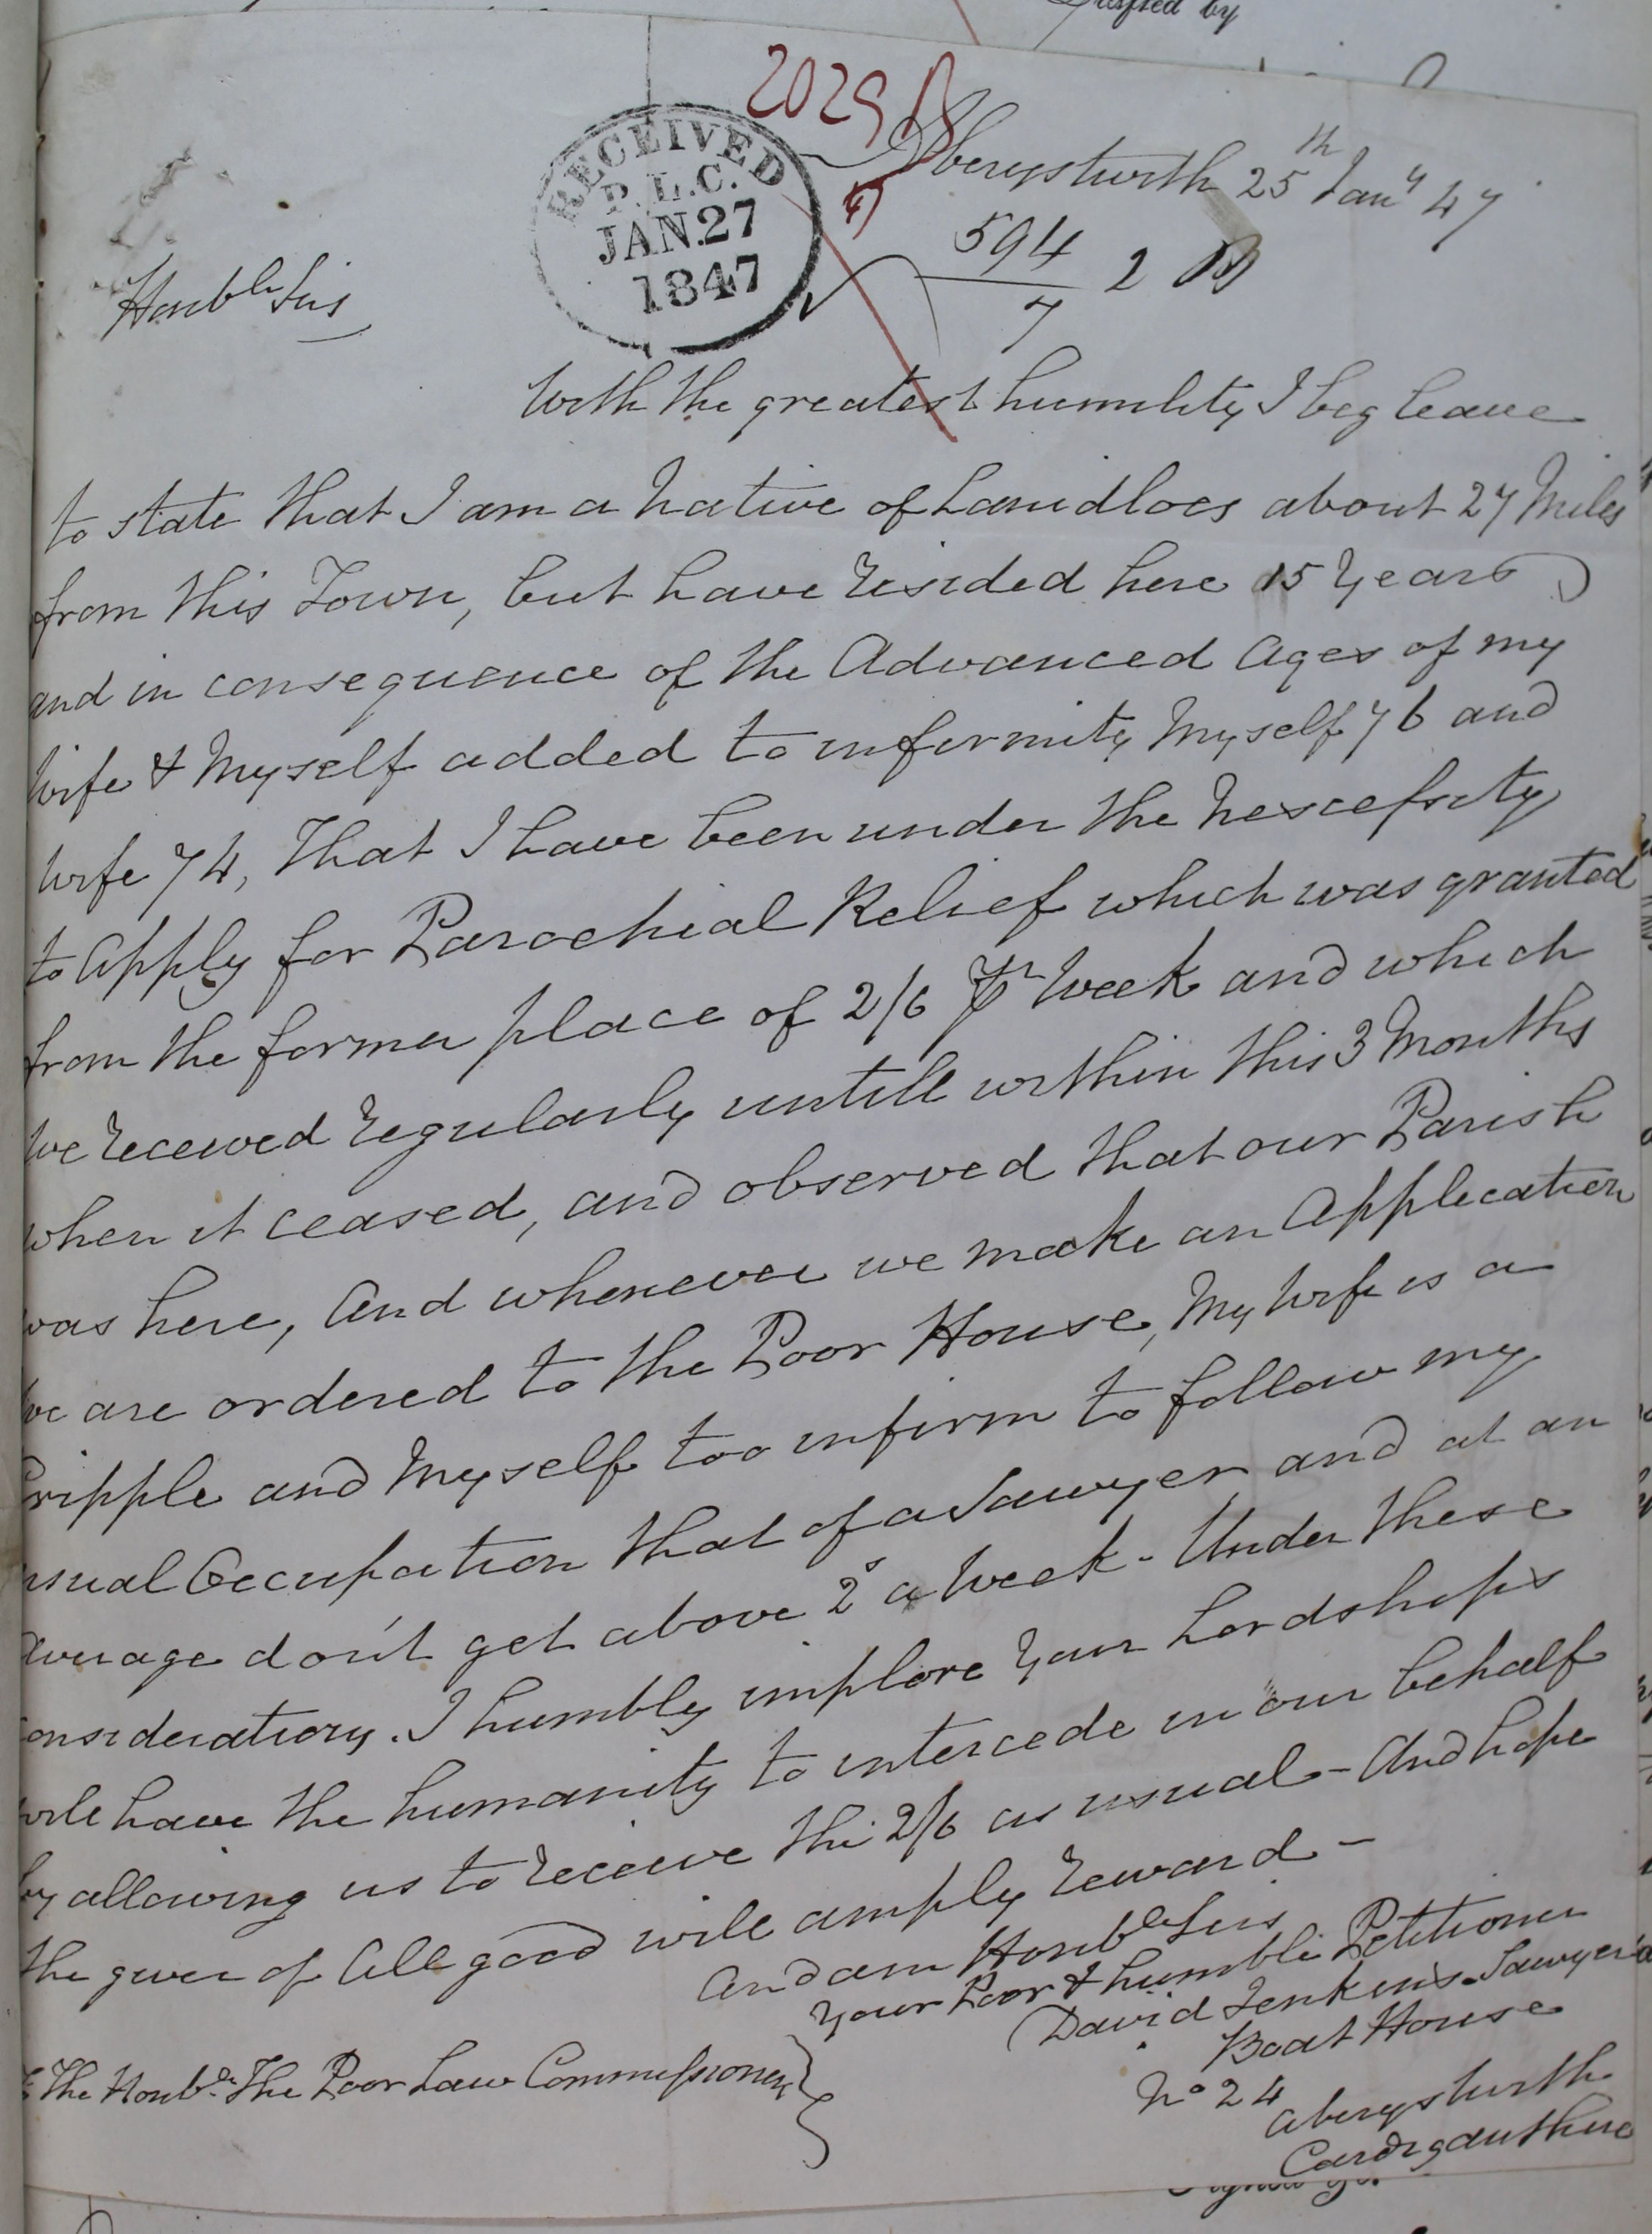 2029 B
Aberystwith 25th Jany 47
RECEIVED
P.L.C.
JAN.27
1847
594
7
2 B
Honble Sirs
With the greatest humility I beg leave
to state that I am a Native of Lanidloes about 27 Miles
from this Town, but have resided here 15 Years
and in consequence of the Advanced Ages of my
Wife & Myself added to infirmity Myself 76 and
Wife 74, That I have been under the Nescessity
to Apply for Parochial Relief which was granted
from the former place of 2/6 Pr Week and which
We received regularly untill within this 3 Months
when it ceased, and observed that our Parish
was here, And whenever we make an Application
We are ordered to the Poor House, My Wife is a
Cripple and Myself too infirm to follow my
usual Occupation that of a Sawyer and at an
Average don't get above 2s a Week - Under these
Considerations. I humbly implore Your Lordships
will have the humanity to intercede in our behalf
by allowing us to receive the 2/6 as usual - And hope
the giver of All good will amply reward -
And am Honble Sirs
Your Poor & humble Petitioner
David Jenkins Sawyer
Boat House
No 24
Aberystwith
Cardiganshire
To The Honble The Poor Law Commissioners